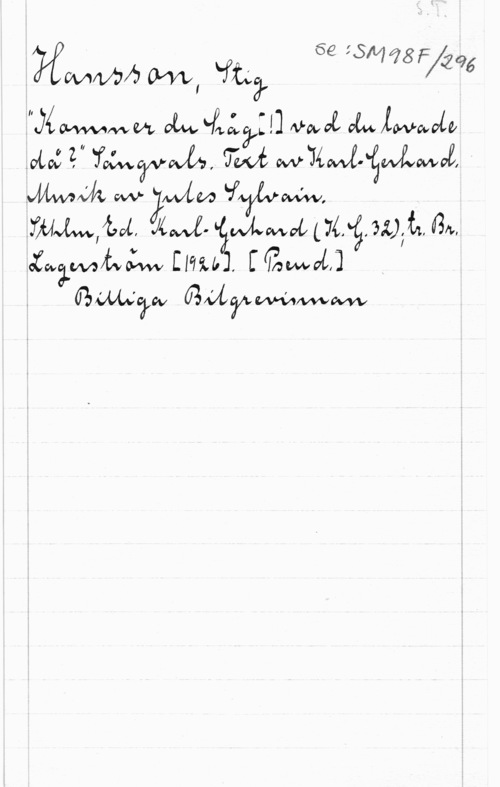 S.T.
se: SM98F/296
Hansson, Stig
"Kommer du håg[!] vad du lovade
då?" Sångvals. Text av Karl-Gerhard.
Musik av Jules Sylvain.
Sthlm, Ed. Karl-Gerhard (K.G. 32); tr. Br.
Lagerström [1926]. [Pseud.]
Billiga Bilgrevinnan